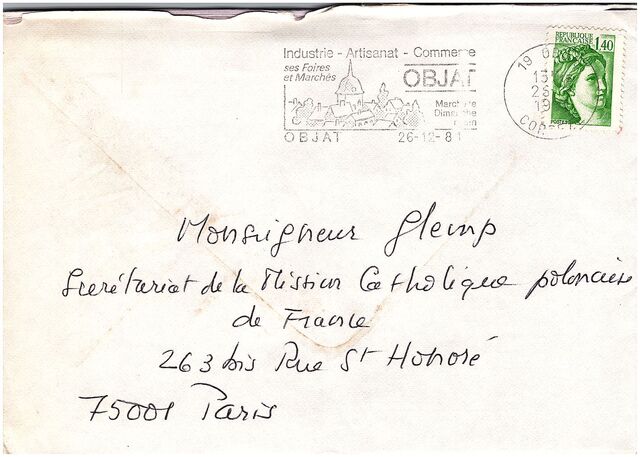 Industrie - Artisanat - Commerce
ses Foires
et Marchés
OBJAT
Dimanche
OBJAT 26-12-81
19
CORREZE
REPUBLIQUE
FRANÇAISE
1,40
POSTES
Monseigneur Glemp
Secrétariat de la Mission Catholique polonaise
de France
263 bis Rue St Honoré
75001 Paris